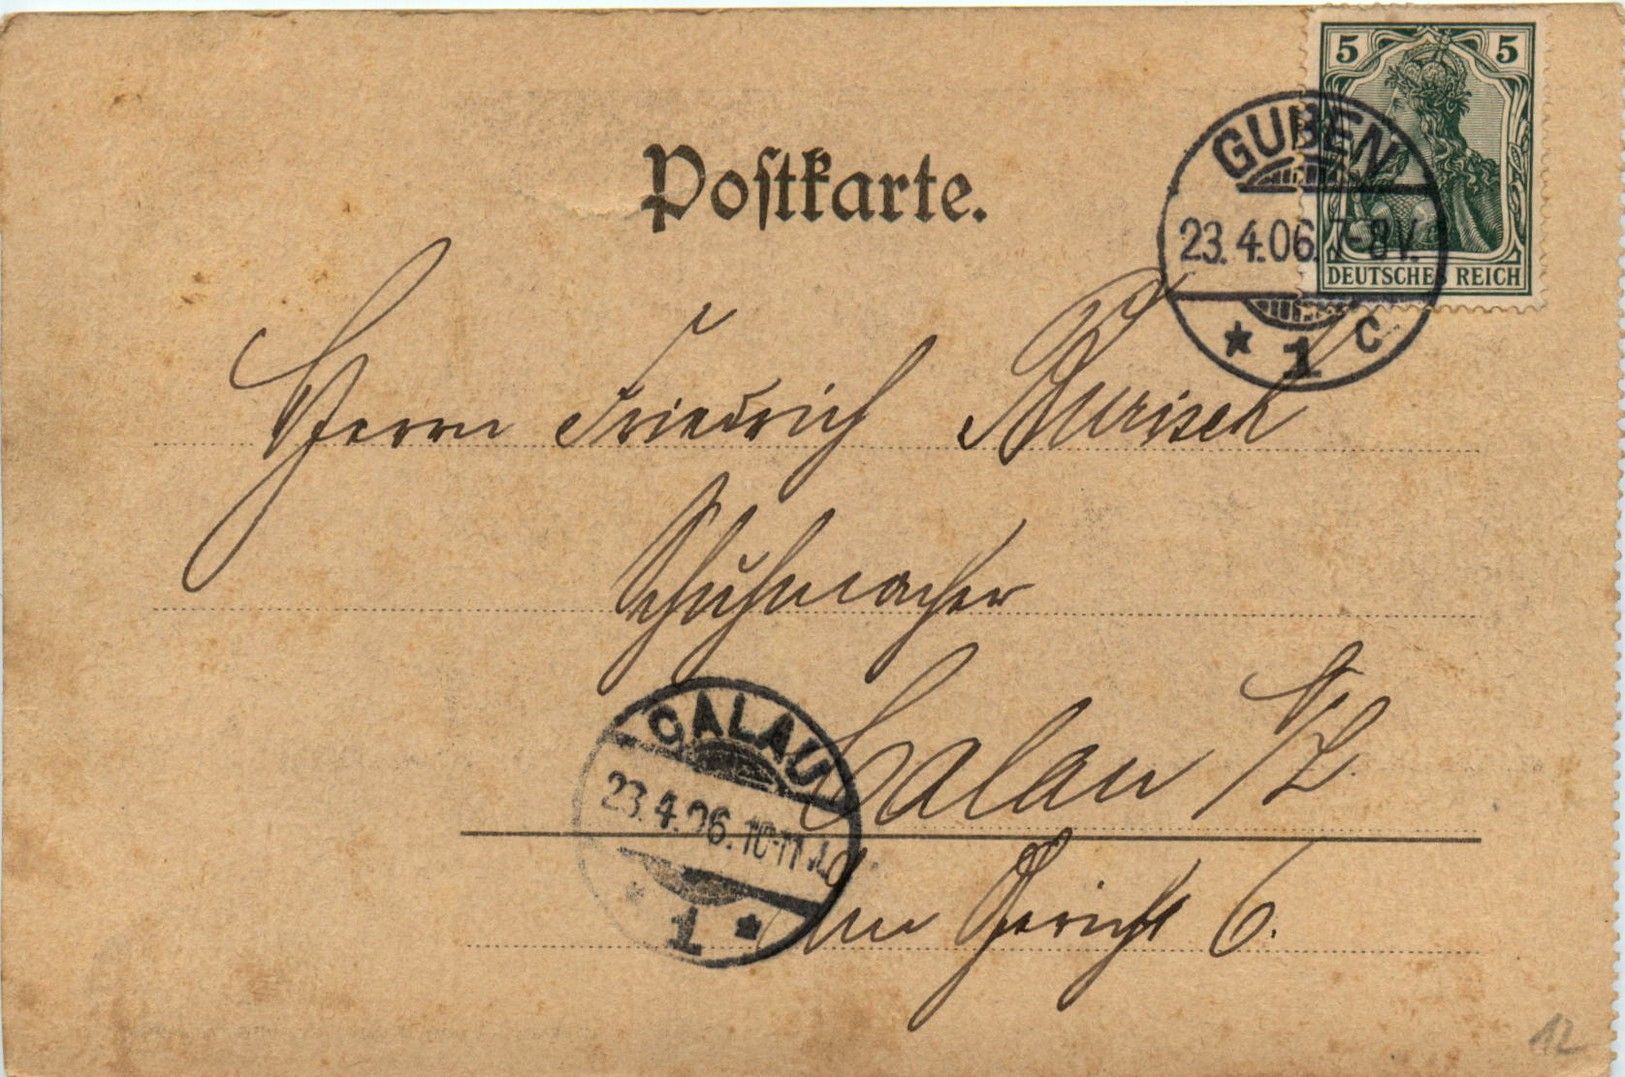 5 5
DEUTSCHES REICH
GUBEN
23.4.06.7-8V.
* 1 c
Postkarte.
Herrn Friedrich
Schuhmacher
Calau N/L.
Am Gericht 6.
CALAU
23.4.06.10-11
* 1 *
12